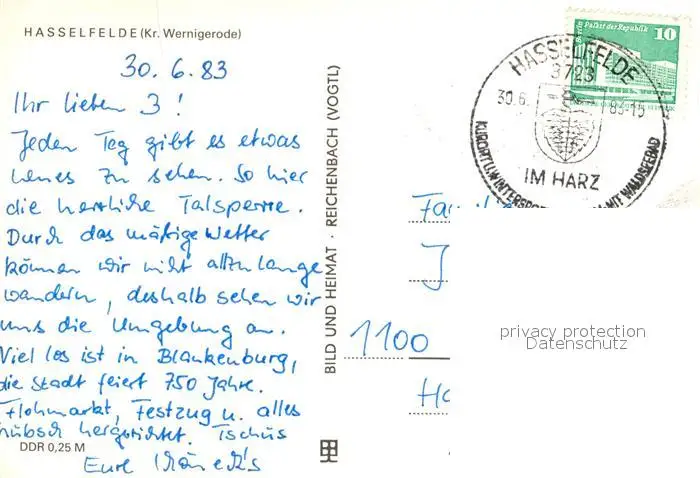 HASSELFELDE (Kr. Wernigerode)
30.6.83
Ihr lieben 3!
Jeden Tag gibt es etwas
neues zu sehen. So hier
die herrliche Talsperre.
Durch das mäßige Wetter
können wir nicht allzu lange
wandern, deshalb sehen wir
uns die Umgebung an.
Viel los ist in Blankenburg,
die Stadt feiert 750 Jahre.
Flohmarkt, Festzug u. alles
hübsch hergerichtet. Tschüs
Eure
DDR 0,25 M
BILD UND HEIMAT · REICHENBACH (VOGTL)
Palast der Republik
10
HASSELFELDE
3723
30.6. 83-15
IM HARZ
KURORT U. WINTERSPO
MIT WALDSEEBAD
Fa
J
1100
Ha
privacy protection
Datenschutz